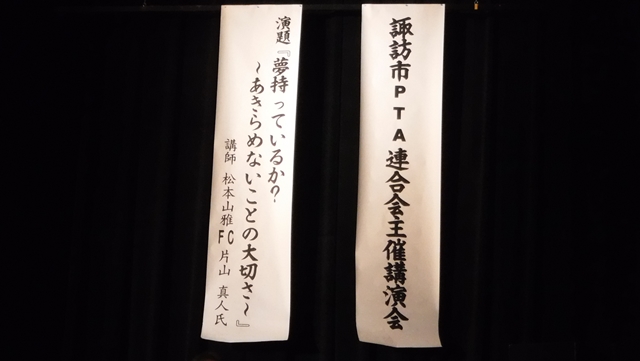 諏訪市PTA連合会主催講演会
演題『夢持っているか?
～あきらめないことの大切さ～』
講師 松本山雅FC 片山 真人氏